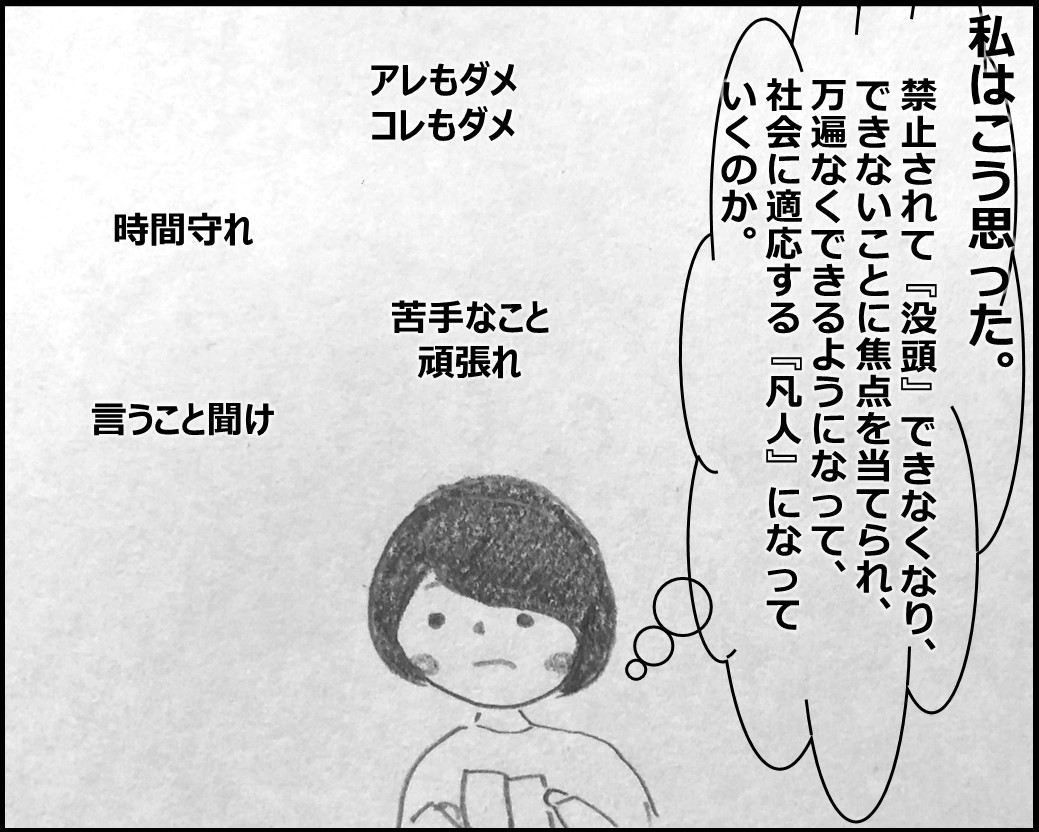 私はこう思った。
禁止されて『没頭』できなくなり、
できないことに焦点を当てられ、
万遍なくできるようになって、
社会に適応する『凡人』になって
いくのか。
アレもダメ
コレもダメ
時間守れ
苦手なこと
頑張れ
言うこと聞け